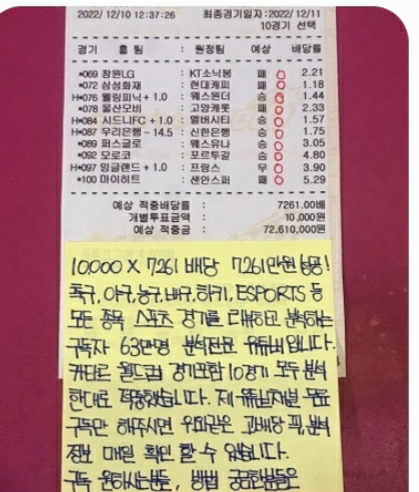 2022/12/10 12:37:26 최종경기일자:2022/12/11
10경기 선택
경기 홈 팀 : 원정팀 예상 배당률
*069 창원LG : KT소닉붐 패 2.21
*072 삼성화재 : 현대캐피 패 1.18
H*076 웰링피닉+1.0 : 웨스원더 승 1.44
*078 울산모비 : 고양캐롯 패 2.33
H*084 시드니FC+1.0 : 멜버시티 승 1.57
H*087 우리은행-14.5 : 신한은행 승 1.75
*089 퍼스글로 : 웨스유나 승 3.05
*092 모로코 : 포르투갈 승 4.80
H*097 잉글랜드+1.0 : 프랑스 무 3.90
*100 마이히트 : 샌안스퍼 패 5.29
예상 적중배당률 : 7261.00배
개별투표금액 : 10,000원
예상 적중금 : 72,610,000원
10,000 X 7261 배당 7261만원 적중!
축구,야구,농구,배구,하키,ESPORTS 등
모든 종목 스포츠 경기를 리뷰하고 분석하는
구독자 63만명 분석전문 유튜버입니다.
카타르 월드컵 경기포함 10경기 모두 분석
한대로 적중했습니다. 제 유튜브채널 무료
구독만 해주시면 우와같은 고배당 픽,분석
정보 매일 확인 할 수 있습니다.
구독 원하시는분들, 방법 궁금한분들은